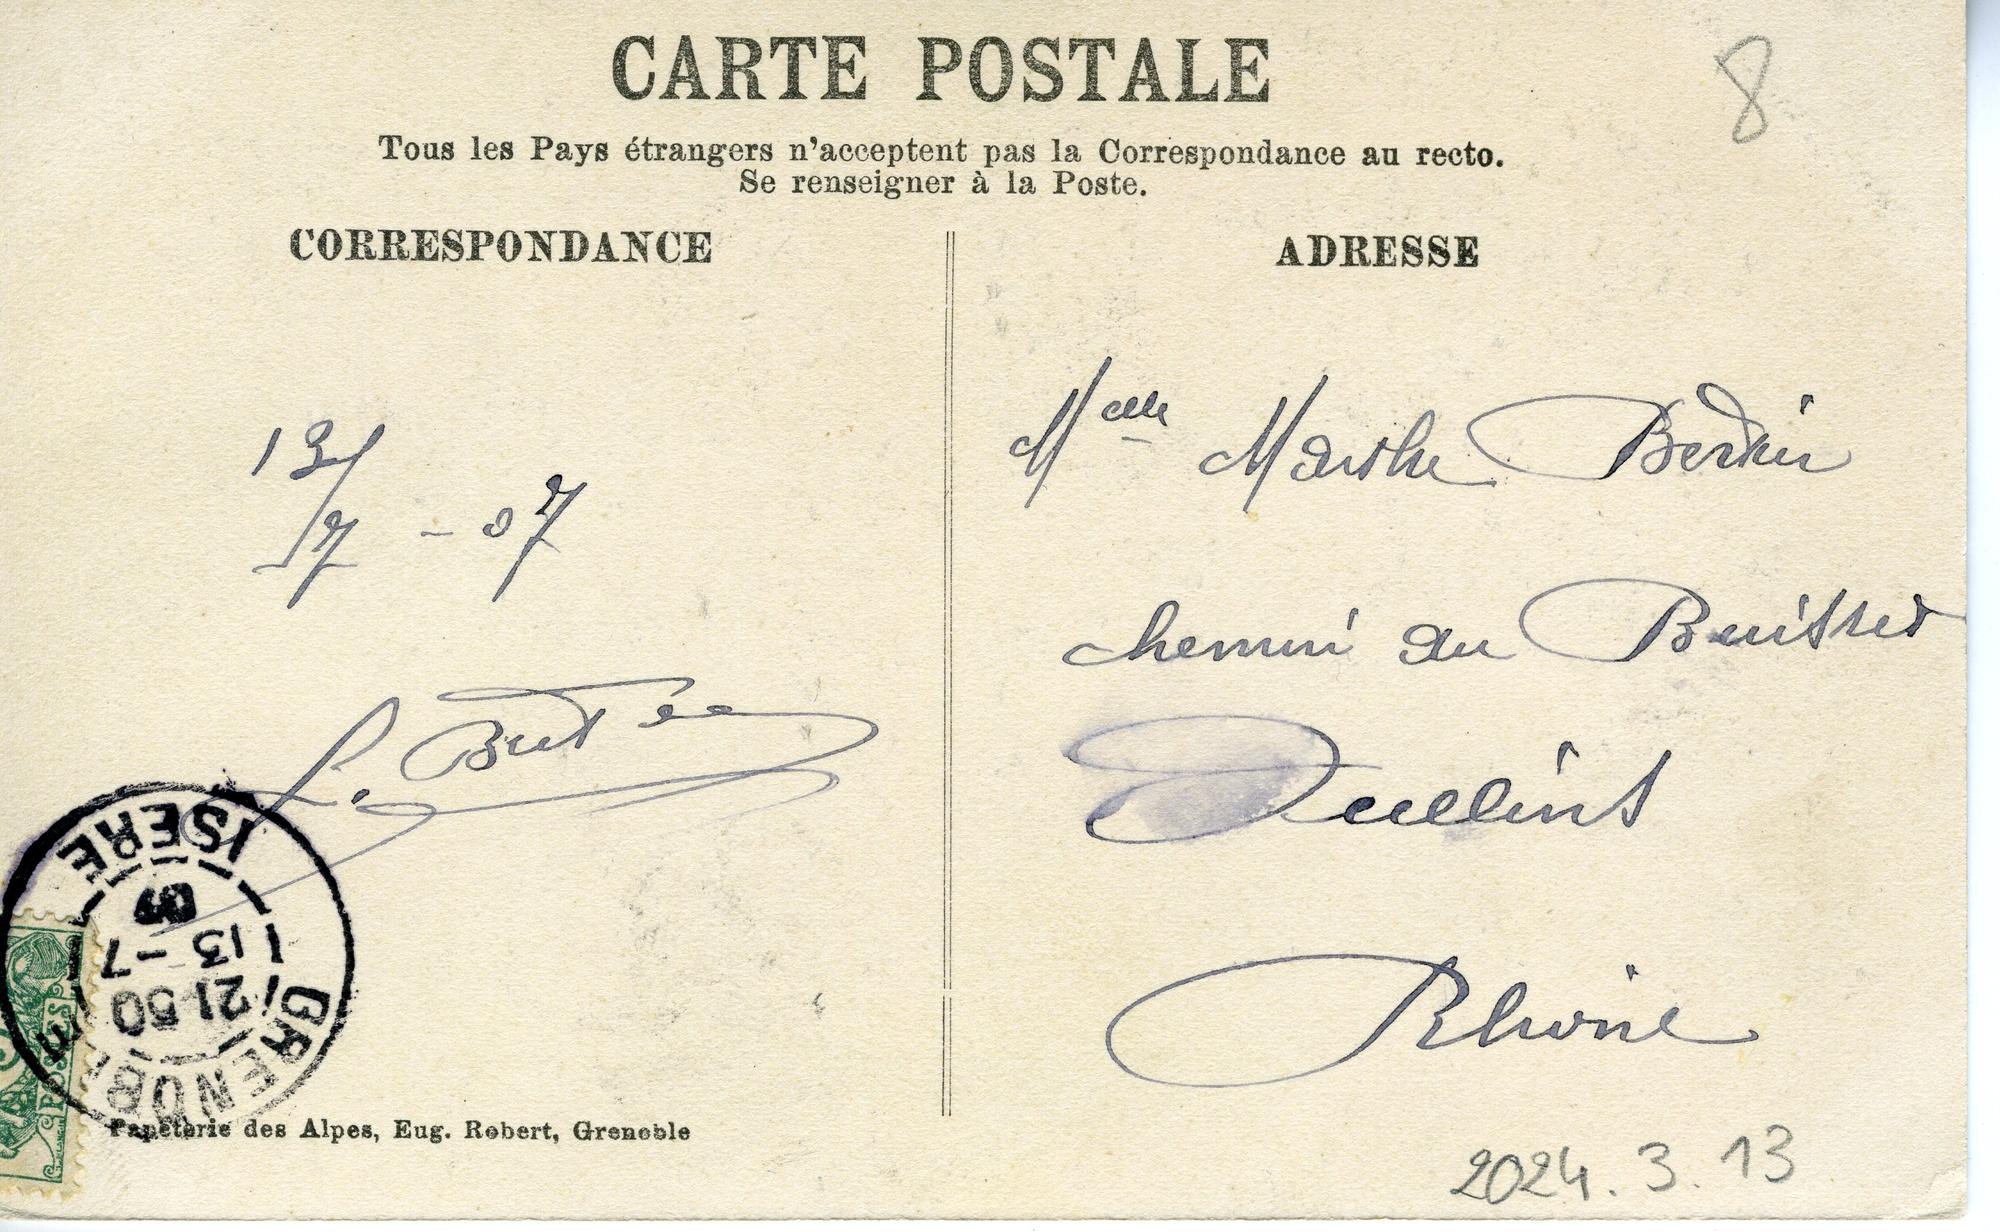 CARTE POSTALE
8
Tous les Pays étrangers n'acceptent pas la Correspondance au recto.
Se renseigner à la Poste.
CORRESPONDANCE
ADRESSE
13/7 - 07
Melle Marthe
chemin du Buisset
Oullins
Rhône
ISERE
13 -7
21-50
GRENOBLE
POSTES
Papeterie des Alpes, Eug. Robert, Grenoble
2024.3.13